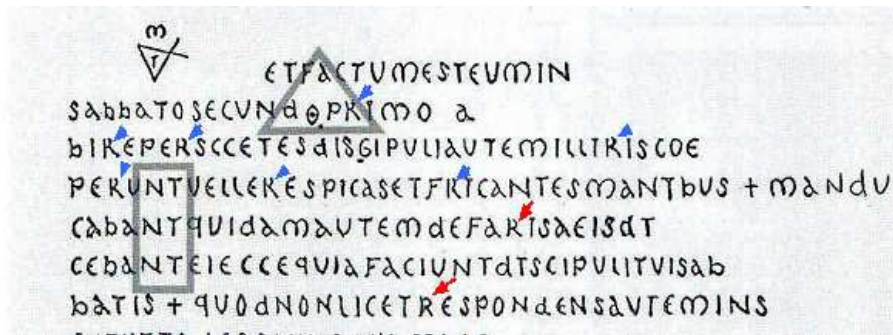 ETFACTUMESTEUMIN
SabbaTOSECUNdθPRIMO a
bIREPERSCCETESdISGIPULIAUTEMILLTRISCOE
PERUNTUELLERESPICASETFRTCANTESmANTbUS + mANdU
CabaNTqUIdAmAUTEmdEFARISAEISdT
CEbaNTEIECCEqUIAFACIUNTdTSCIPULITUISab
baTIS + qUOdNONLICETRESPONdENSAUTEmINS